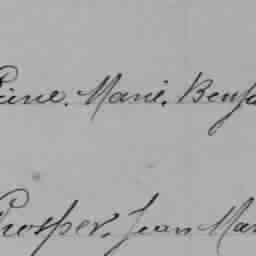 Reine. Marie. Benja
Prosper. Jean Mar